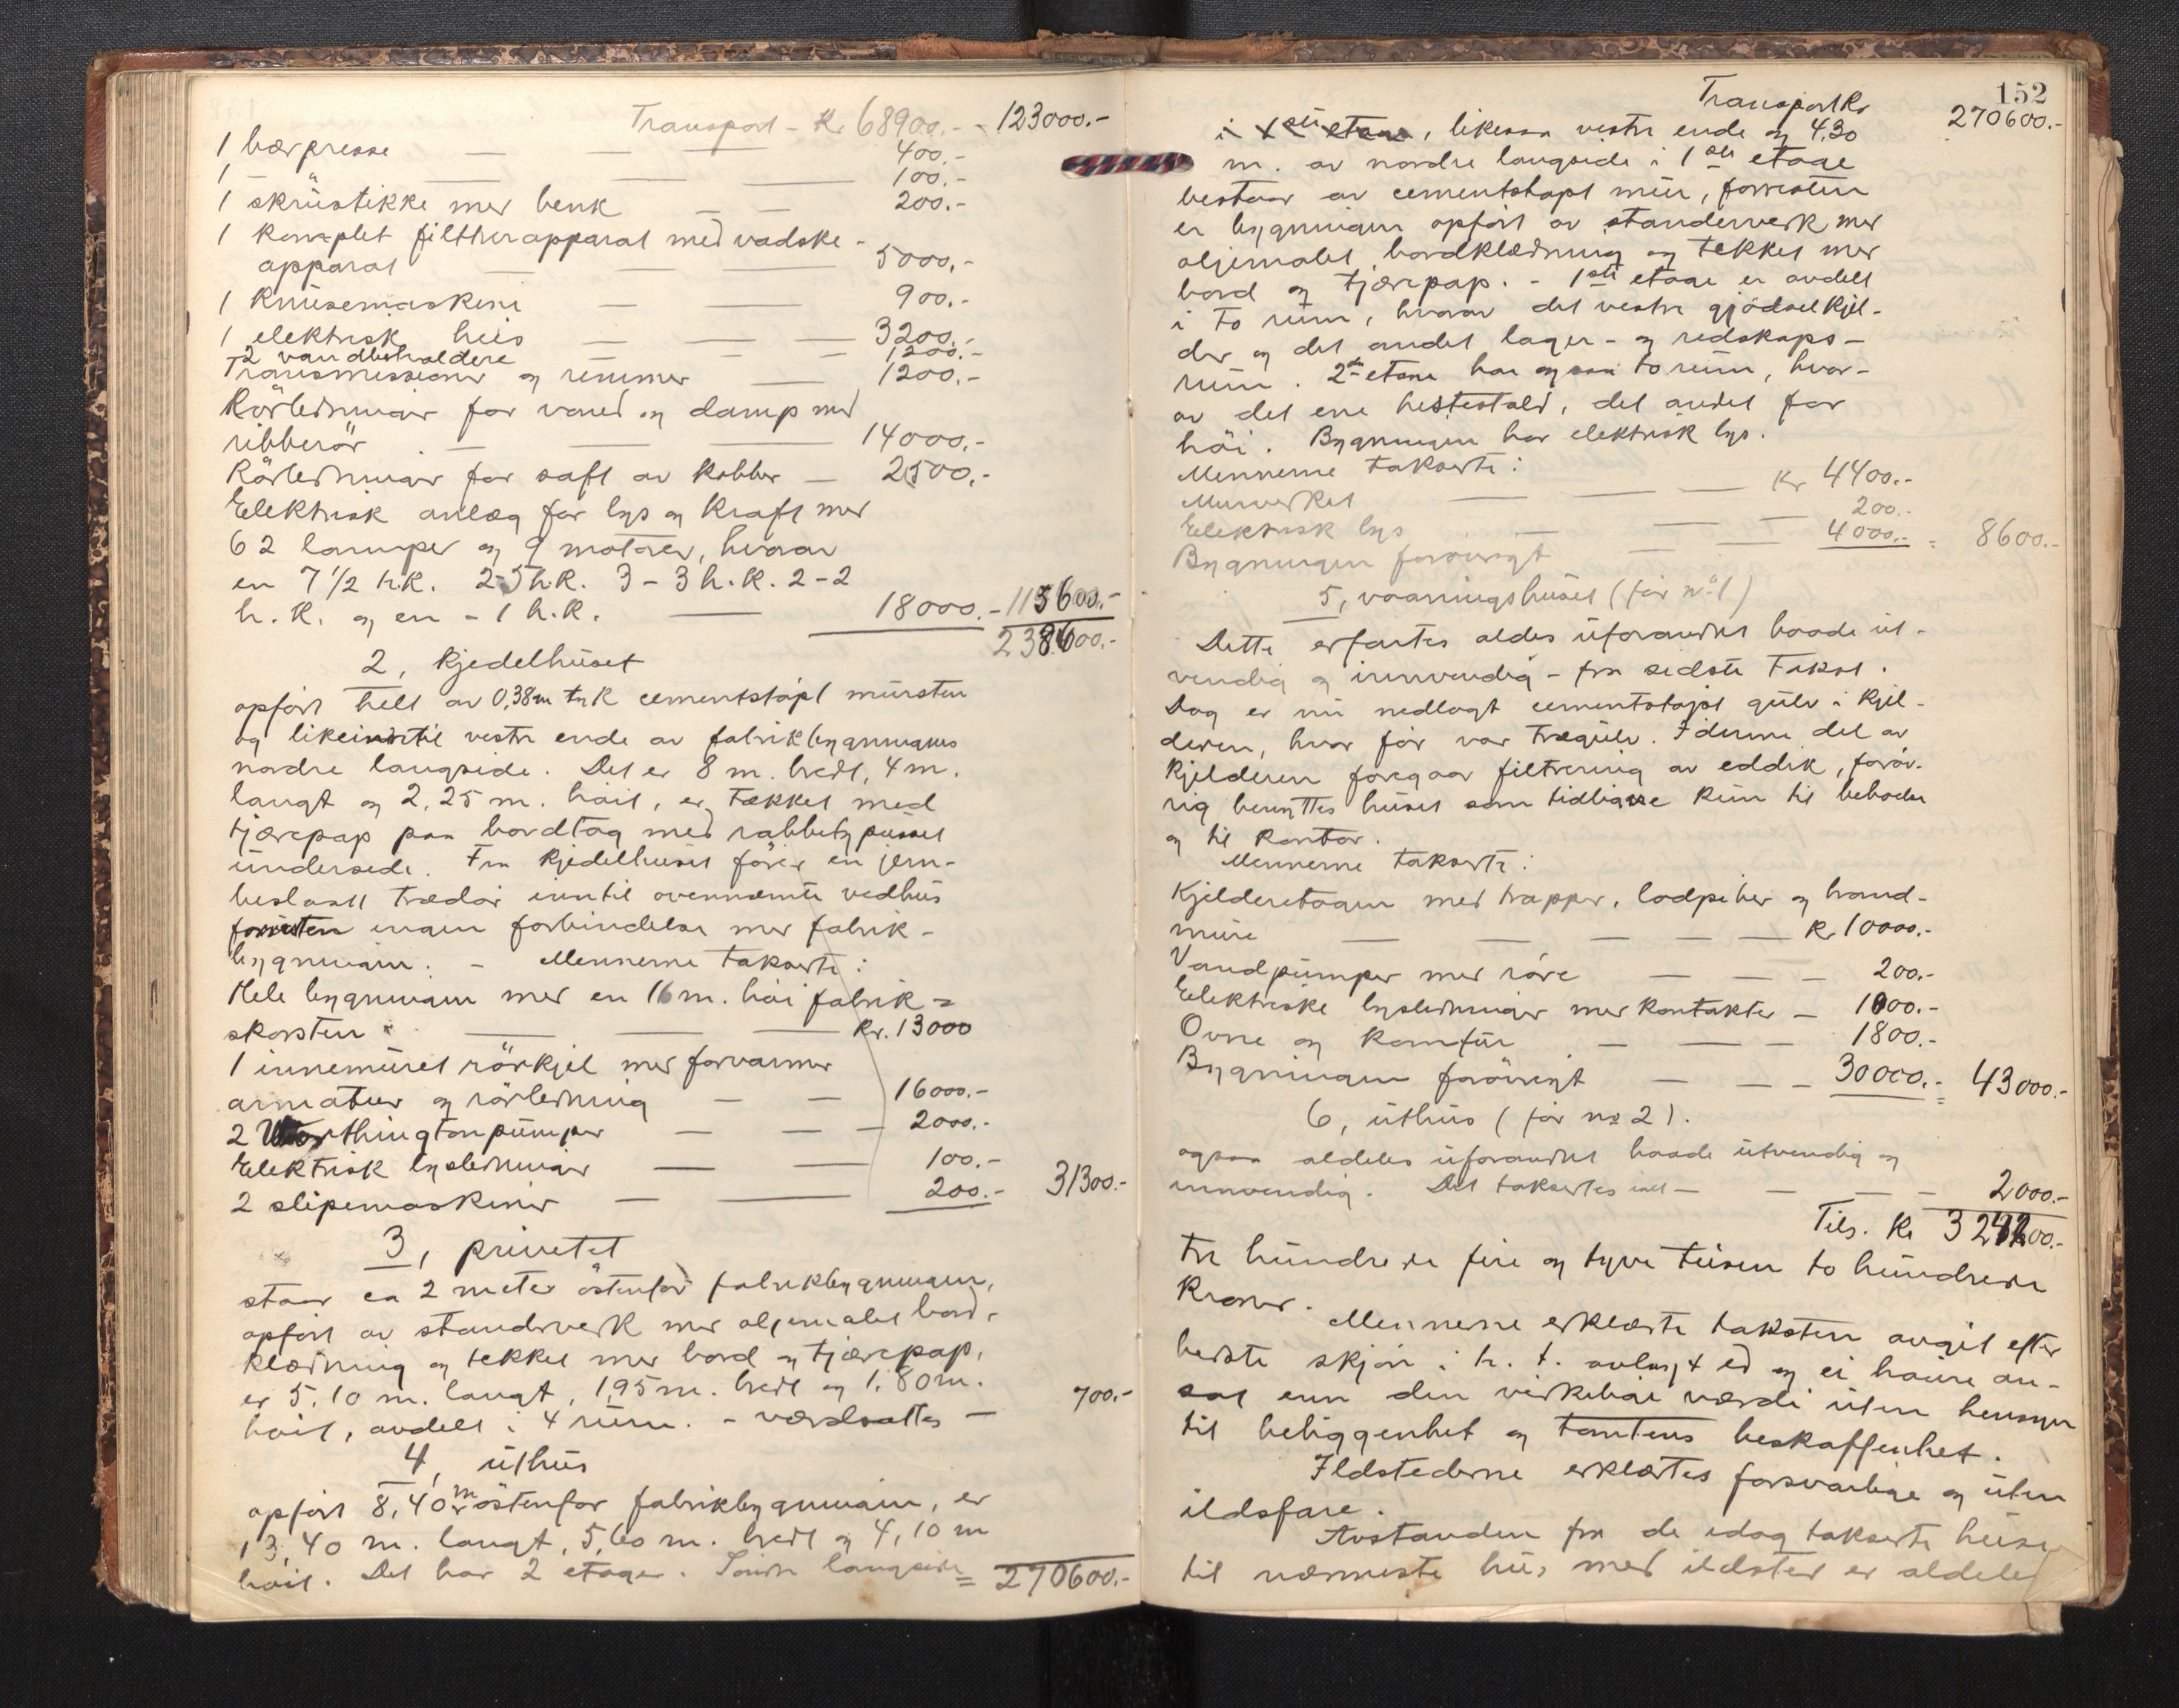 Transport - Kr 68900.- - 123000.-
1 bærpresse — — — 400.-
1 " — — — 100.-
1 skrüstikke med benk — — 200.-
1 komplet filtherapparat med vadske-
apparat — — — 5000.-
1 knüsemaskine — — 900.-
1 elektrisk heis — — — 3200.-
2 vandbeholdere — — — 1200.-
Transmissioner og remmer — 1200.-
Rörledninger for vand og damp med
ribberör — — — 14000.-
Rörledninger for saft av kobber — 2500.-
Elektrisk anlæg for lys og kraft med
62 lamper og 9 motorer, hvorav
en 7 1/2 h.k. 2-5 h.k. 3-3 h.k. 2-2
h.k. og en - 1 h.k. — 18000.- 115600.-
238600.-
2, Kjedelhüset
opfört helt av 0,38m tyk cementstöpt mürsten
og like inntil vestre ende av fabrikbygningens
nordre langside. Det er 8 m. bredt, 4 m.
langt og 2,25 m. höit, er tækket med
tjærepap paa bordtag med rabbitzpüsset
ünderside. Fra kjedelhüset förer en jern-
beslaatt trædör inntil ovennævnte vedhüs
forresten ingen forbindelse med fabrik-
bygningen. - Mennene takserte:
Hele bygningen med en 16 m. höi fabrik-
skorsten — — — Kr. 13000
1 innemüret rörkjel med forvarmer
armatur og rörledning — — 16000.-
2 Worthingtonpümper — — — 2000.-
Elektrisk lysledninger — — 100.-
2 slipemaskiner — — 200.- 31300.-
3, privetet
staar ca 2 meter östenfor fabrikbygningen,
opfört av standerverk med oljemalet bord-
klædning og tekket med bord og tjærepap,
er 5,10 m. langt, 1,95 m. bredt og 1,80 m.
höit, avdelt i 4 rüm. - værdsattes — 700.-
4, üthüs
opfört 8,40 m östenfor fabrikbygningen, er
13,40 m. langt, 5,60 m. bredt og 4,10 m
höit. Det har 2 etager. Söndre langside = 270600.-
152
Transport Kr 270600.-
i 1ste etage, likesaa vestre ende og 4,30
m. av nordre langside i 1ste etage
bestaar av cementstøpt mür, forresten
er bygningen opfört av standerverk med
oljemalet bordklædning og tekket med
bord og tjærepap. - 1ste etage er avdelt
i to rüm, hvorav det vestre gjödselkjel-
der og det andet lager- og redskaps-
rüm. 2de etage har ogsaa to rüm, hvor-
av det ene hestestald, det andet for
höi. Bygningen har elektrisk lys.
Mennene takserte:
Murverket — — — Kr 4400.-
Elektrisk lys — — — 200.-
Bygningen forövrigt — — 4000.- = 8600.-
5, vaaningshüset (för no 1)
Dette erfartes aldeles üforandret baade üt-
vendig og innvendig - fra sidste takst.
Dog er nü nedlagt cementstøpt gülv i kjel-
deren, hvor för var trægülv. I denne del av
kjelderen foregaar filtrering av eddik, foröv-
rig benyttes hüset som tidligere kün til beboelse
og til kontor.
Mennene takserte:
Kjelderetagen med trapper, lodpiber og brand-
müre — — — — Kr 10000.-
Vandpümper med röre — — — 200.-
Elektriske lysledninger med kontakter — 1000.-
Ovne og komfür — — — 1800.-
Bygningen forövrigt — — — 30000.- = 43000.-
6, üthüs (för no 2).
ogsaa aldeles üforandret baade ütvendig og
innvendig. Det takseres til — — — 2000.-
Tils. Kr 324200.-
tre hündrede fire og tyve tüsen to hündrede
Kroner.
Mennene erklærte taksten avgit efter
bedste skjön i h. t. avlagt ed og ei höiere an-
sat enn den virkelige værdi üten hensyn
til beliggenhet og tomtens beskaffenhet.
Ildstederne erklærtes forsvarlige og üten
ildsfare.
Avstanden fra de idag takserte hüse
til nærmeste hüs med ildsted er aldeles